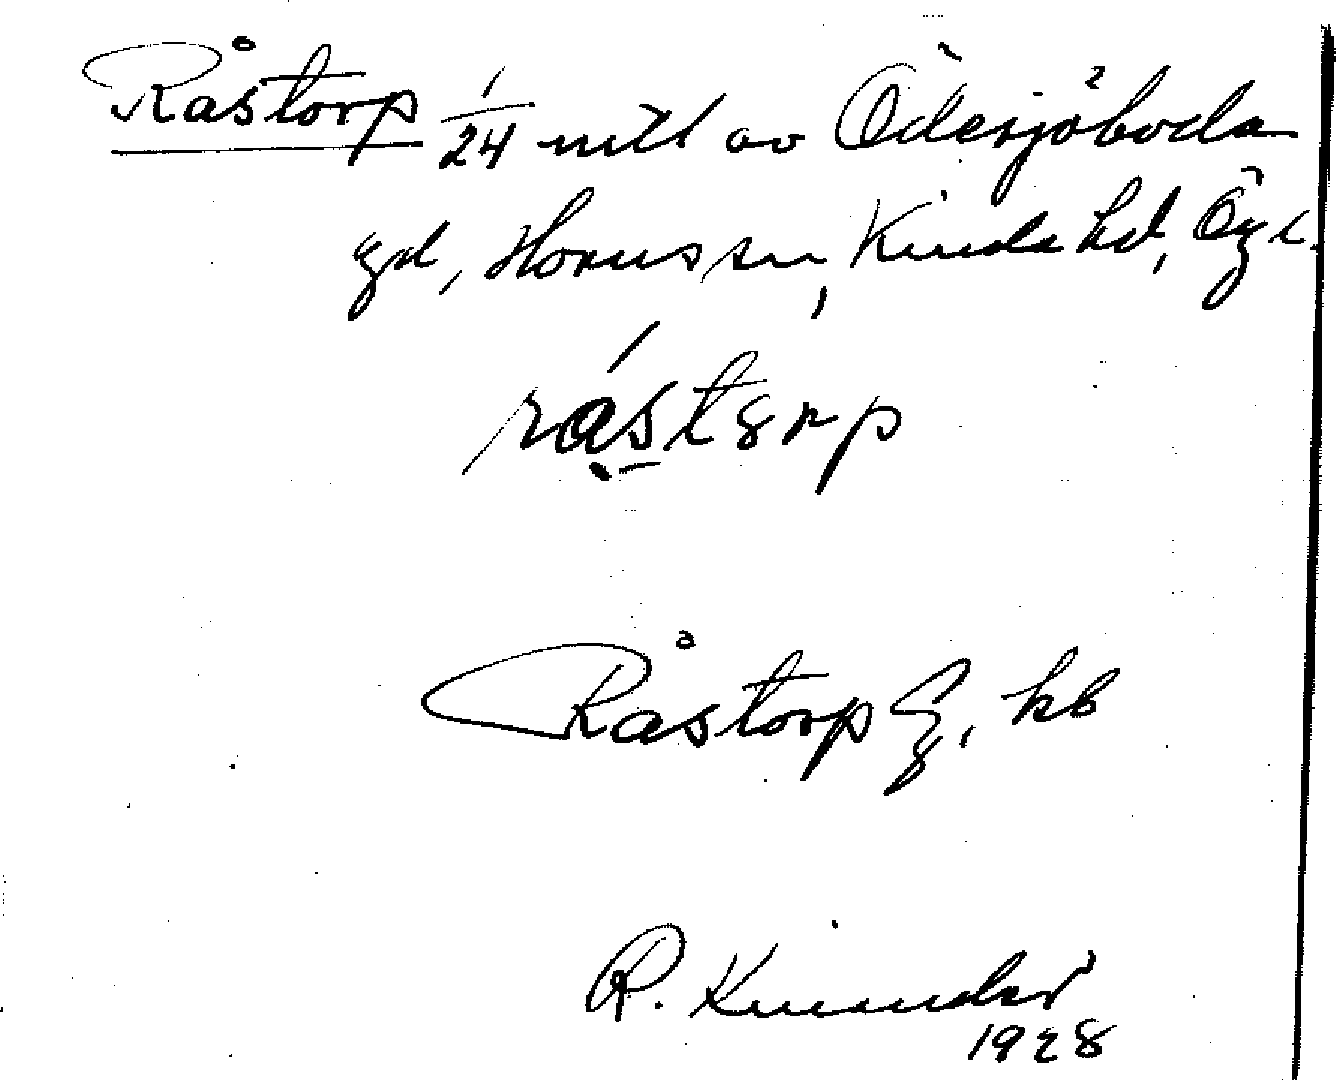 Råstorp 1/24 mtl av Ödesjöboda
gd, Horns sn, Kinda hd, Ög l.
råstorp
Råstorp
R. Kinander
1928